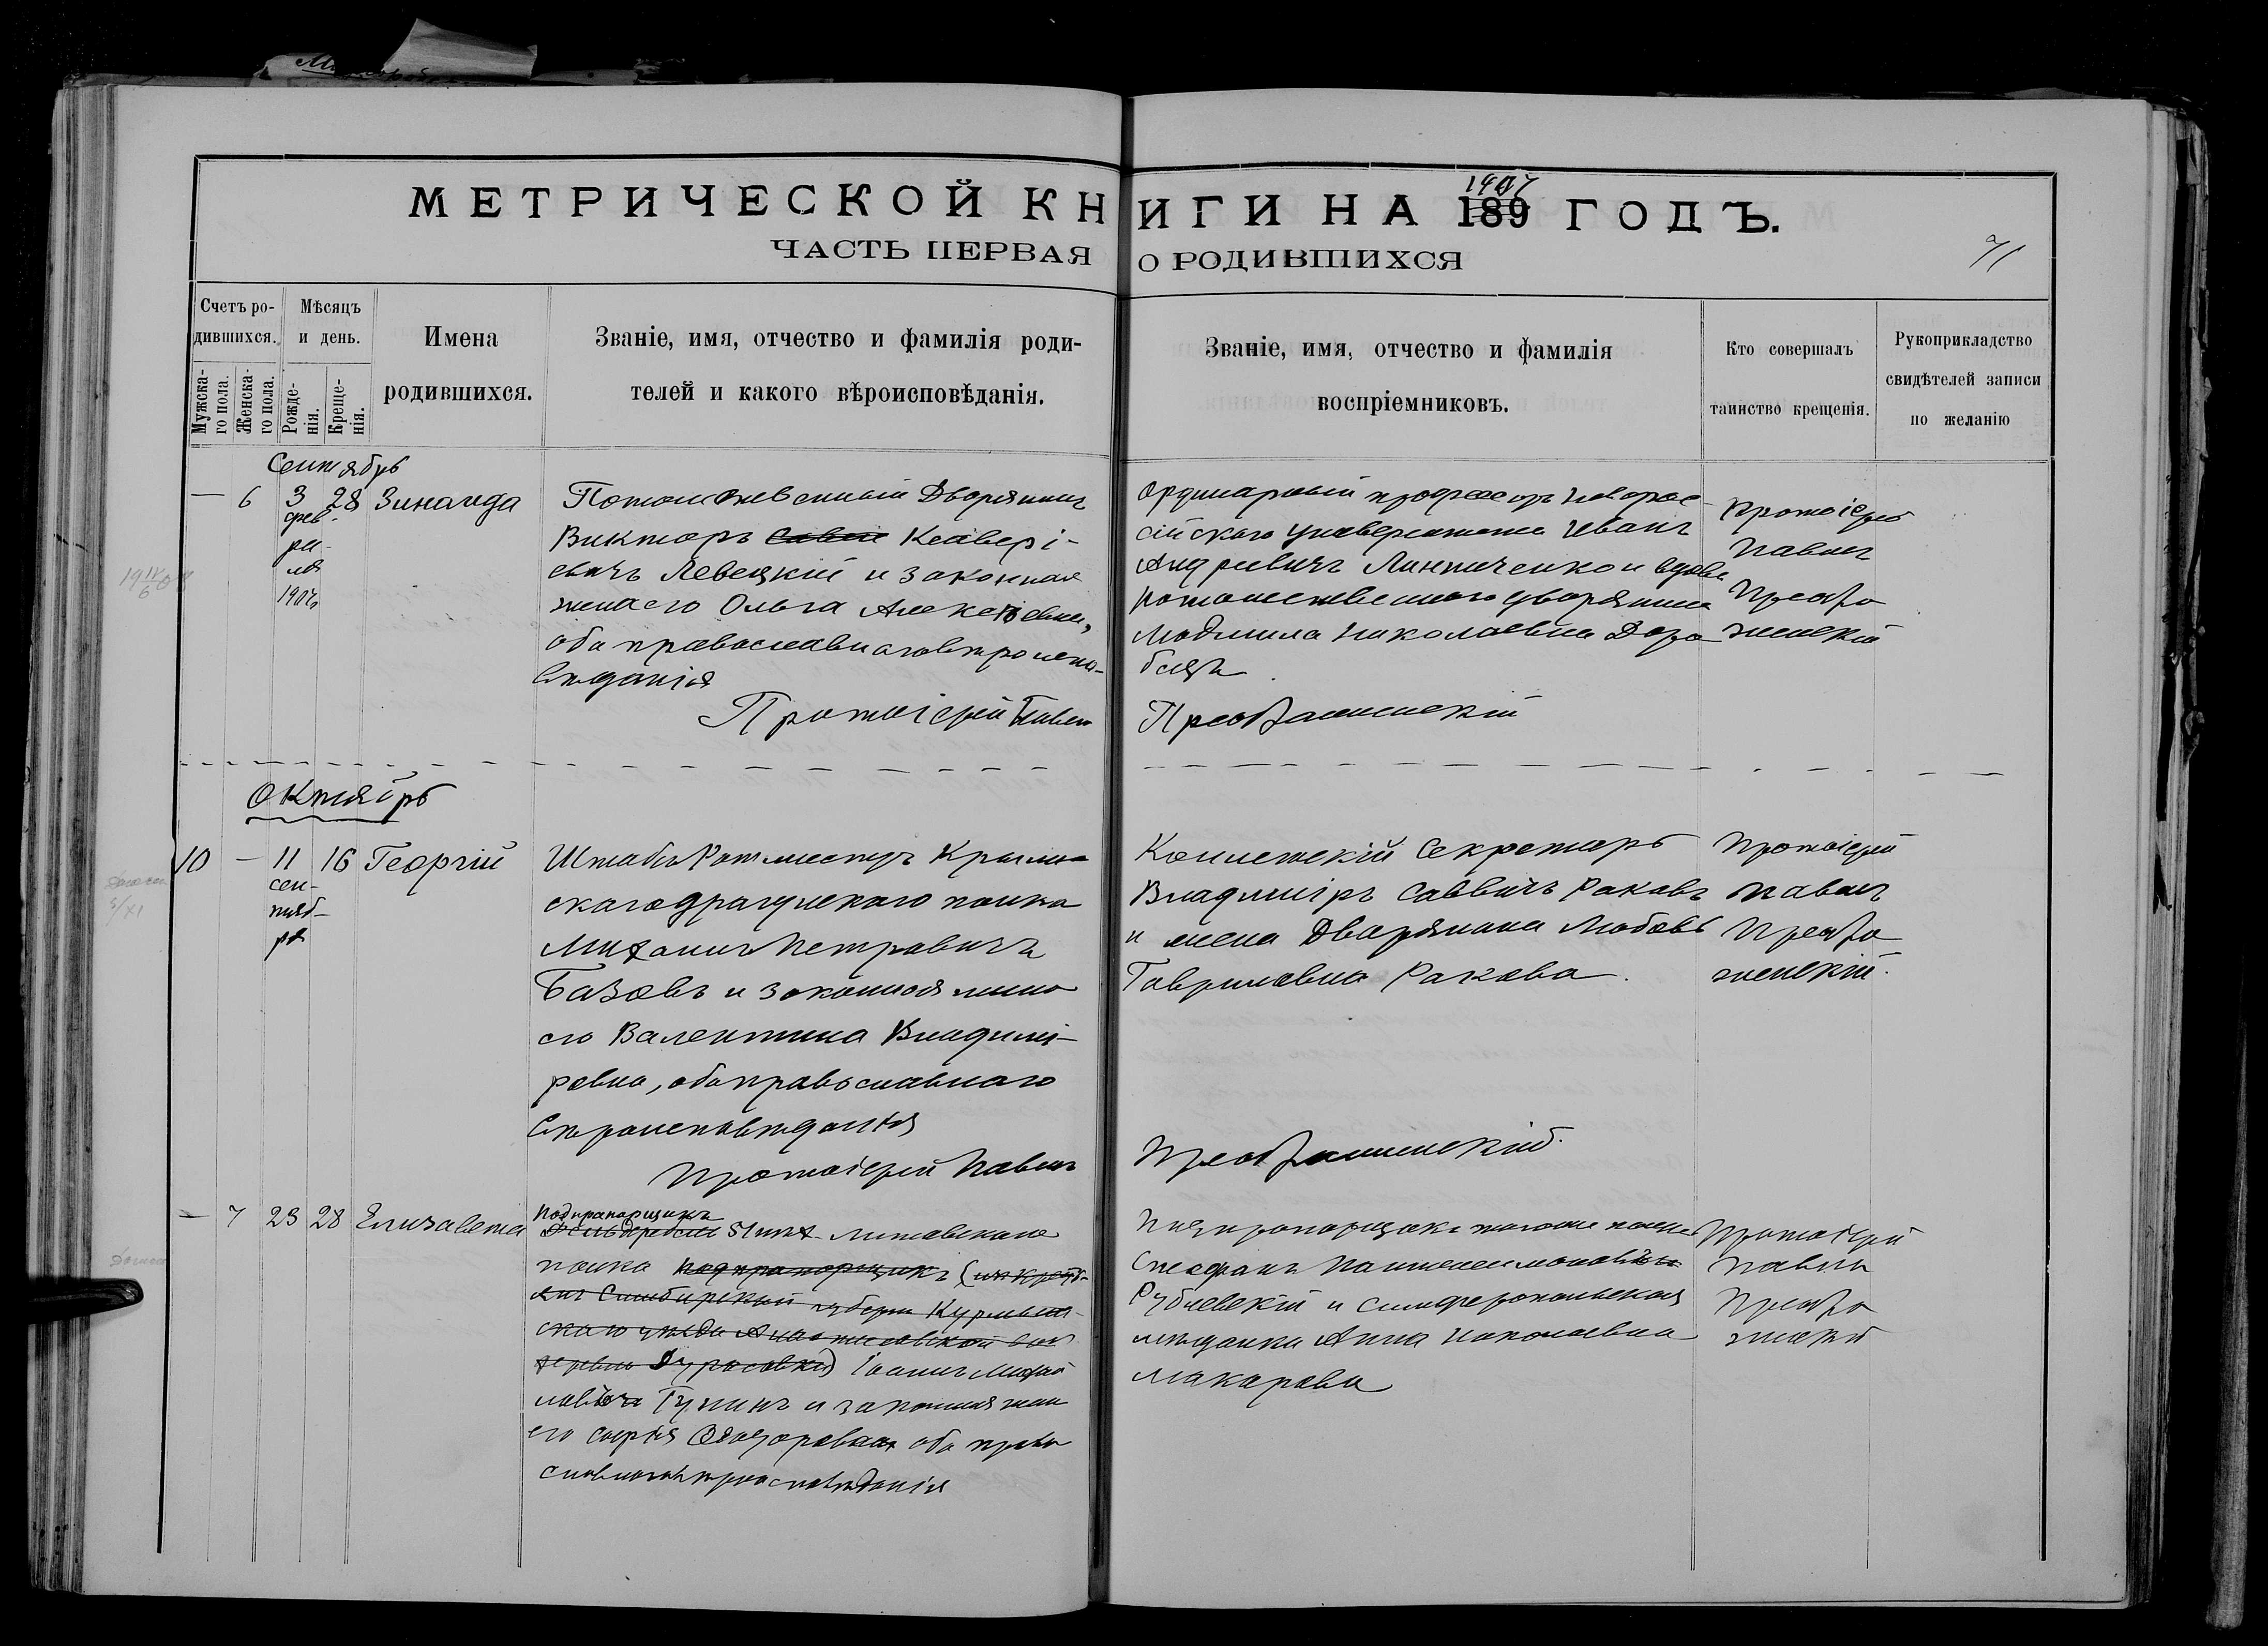 МЕТРИЧЕСКОЙ КНИГИ НА 189 1907 ГОДЪ.
ЧАСТЬ ПЕРВАЯ О РОДИВШИХСЯ
71
Счетъ ро-
дившихся.
Мужска-
го пола.
Женска-
го пола.
Мѣсяцъ
и день.
Рожде-
нія.
Креще-
нія.
Имена
родившихся.
Званіе, имя, отчество и фамилія роди-
телей и какого вѣроисповѣданія.
Званіе, имя, отчество и фамилія
воспріемниковъ.
Кто совершалъ
таинство крещенія.
Рукоприкладство
свидѣтелей записи
по желанію
Сентябрь
— 6 3 28 Зинаида
фев-
ра-
ля
1907
Потомственный Дворянинъ
Викторъ Ксавері-
евичъ Левецкій и законная
жена его Ольга Алексѣевна,
оба православнаго вѣроиспо-
вѣданія
Протоіерей Павелъ
Ординарный профессоръ Новорос-
сійскаго Университета Иванъ
Андреевичъ Линниченко и вдова
потомственнаго дворянина
Людмила Николаевна Доро
бецъ
Преображенскій
Протоіерей
Павелъ
Преобра
женскій
Октябрь
10 — 11 16 Георгій
сен-
тяб-
ря
Штабсъ Ротмистръ Крым-
скаго драгунскаго полка
Михаилъ Петровичъ
Базовъ и законная жена
его Валентина Владимі-
ровна, оба православнаго
вѣроисповѣданія
Протоіерей Павелъ
Коллежскій Секретарь
Владиміръ Саввичъ Раковъ
и жена Дворянина Любовь
Гавриловна Ракова.
Преображенскій.
Протоіерей
Павелъ
Преобра
женскій.
— 7 23 28 Елизавета
Подпрапорщикъ
51 пѣх. Литовскаго
полка подпрапорщикъ (изъ крест-
янъ Симбирской губерніи Курмыш-
скаго уѣзда
деревни) Іоаннъ Михай
ловичъ Гунинъ и законная жена
его Софія Ѳеодоровна оба право
славнаго вѣроисповѣданія
Подпрапорщикъ того же полка
Стефанъ Пантелеимоновичъ
Рублевскій и Симферопольская
мѣщанка Анна Николаевна
Макарова
Протоіерей
Павелъ
Преобра
женскій